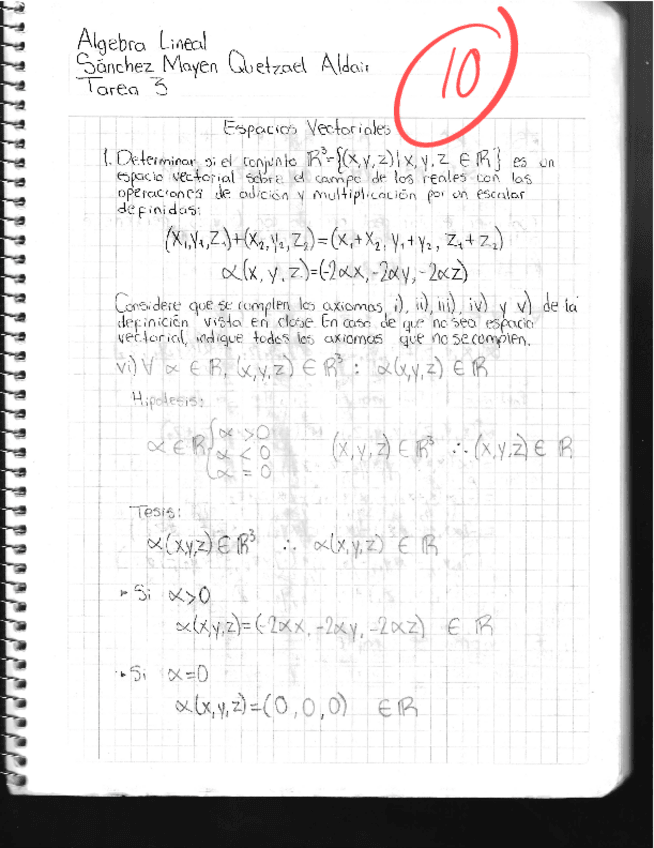 Algebra Lineal
Sánchez Mayen Quetzael Aldair
Tarea 3
10
Espacios Vectoriales
1. Determinar si el conjunto ℝ³={(x,y,z)|x,y,z ∈ ℝ} es un
espacio vectorial sobre el campo de los reales con las
operaciones de adición y multiplicación por un escalar
definidas:
(x₁,y₁,z₁)+(x₂,y₂,z₂)=(x₁+x₂, y₁+y₂, z₁+z₂)
α(x, y, z)=(-2αx, -2αy, -2αz)
Considere que se cumplen los axiomas i), ii), iii), iv) y v) de la
definición vista en clase. En caso de que no sea espacio
vectorial, indique todos los axiomas que no se complen.
vi) ∀ α ∈ ℝ, (x,y,z) ∈ ℝ³ : α(x,y,z) ∈ ℝ
Hipótesis:
α ∈ ℝ { α > 0
α < 0
α = 0
(x,y,z) ∈ ℝ³ ∴ (x,y,z) ∈ ℝ
Tesis:
α(x,y,z) ∈ ℝ³ ∴ α(x,y,z) ∈ ℝ
Si α>0
α(x,y,z)=(-2αx, -2αy, -2αz) ∈ ℝ
Si α=0
α(x,y,z)=(0,0,0) ∈ ℝ